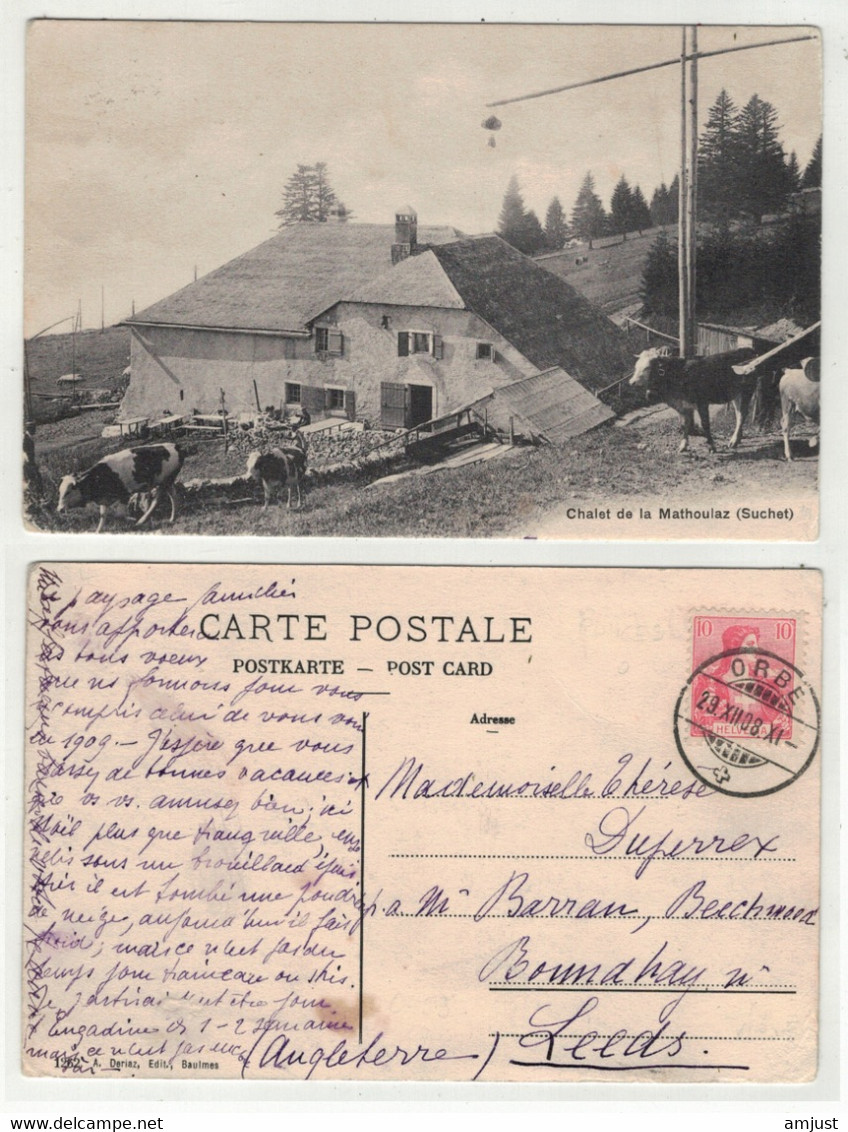 Chalet de la Mathoulaz (Suchet)
CARTE POSTALE
POSTKARTE — POST CARD
Adresse
10 10
HELVETIA
ORBE
29.XII.08.XI-
paysage familier
vous apportera
tous voeux
que ns formons pour vous
compris celui de vous voir
en 1909. — J'espère que vous
passez de bonnes vacances et
que vs vs. amusez bien; ici
Noël plus que tranquille, 
sous un brouillard épais
hier il est tombé une poudrée
neige, aujourd'hui il fait
froid; mais ce n'est pas du
temps pour traineau ou skis.
Je partirai peut être pour
l'Engadine ds 1-2 semaines
mais ce n'est pas enc
Mademoiselle Thérèse
Duperrex
p. a Mrs Barran, Beechwood
Roundhay, nr
Leeds.
(Angleterre)
1262 A. Deriaz, Edit., Baulmes
amjust